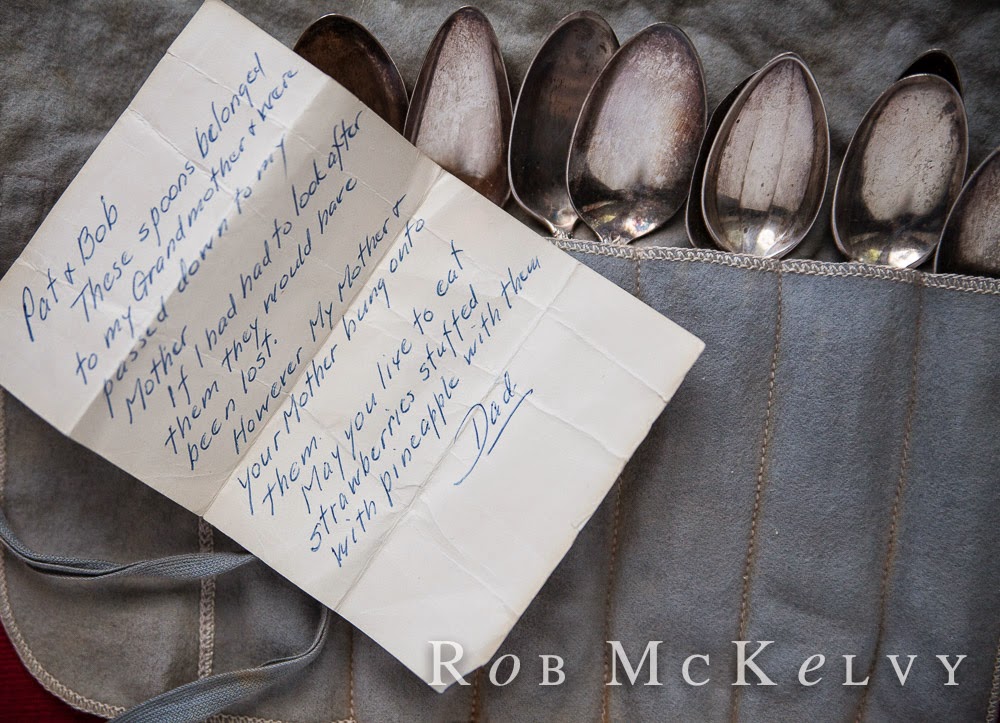 Pat & Bob
These spoons belonged
to my Grandmother & were
passed down to my
Mother.
If I had had to look after
them they would have
been lost.
However My Mother &
your Mother hung onto
them.
May you live to eat
strawberries stuffed
with pineapple with them
Dad
Rob McKelvy